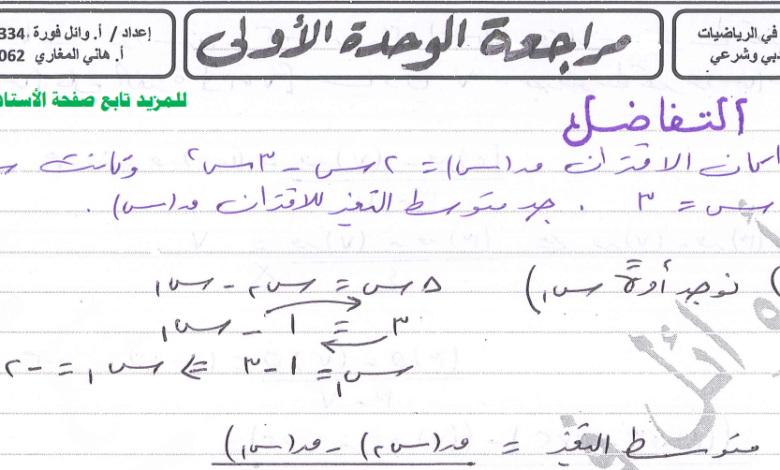 في الرياضيات
دبي وشرعي
مراجعة الوحدة الأولى
إعداد / أ. وائل فورة 334
أ. هاني المغاري 062
للمزيد تابع صفحة الأستا
التفاضل
كان الاقتران ق(س) = ٢س - ٣س٢ وكانت س
س = ٣ . جد متوسط التغير للاقتران ق(س) .
) نوجد أولاً س١) ∆س = س٢ - س١
٣ = ١ - س١
س١ = ١ - ٣ => س١ = -٢
متوسط التغير = ق(س٢) - ق(س١)